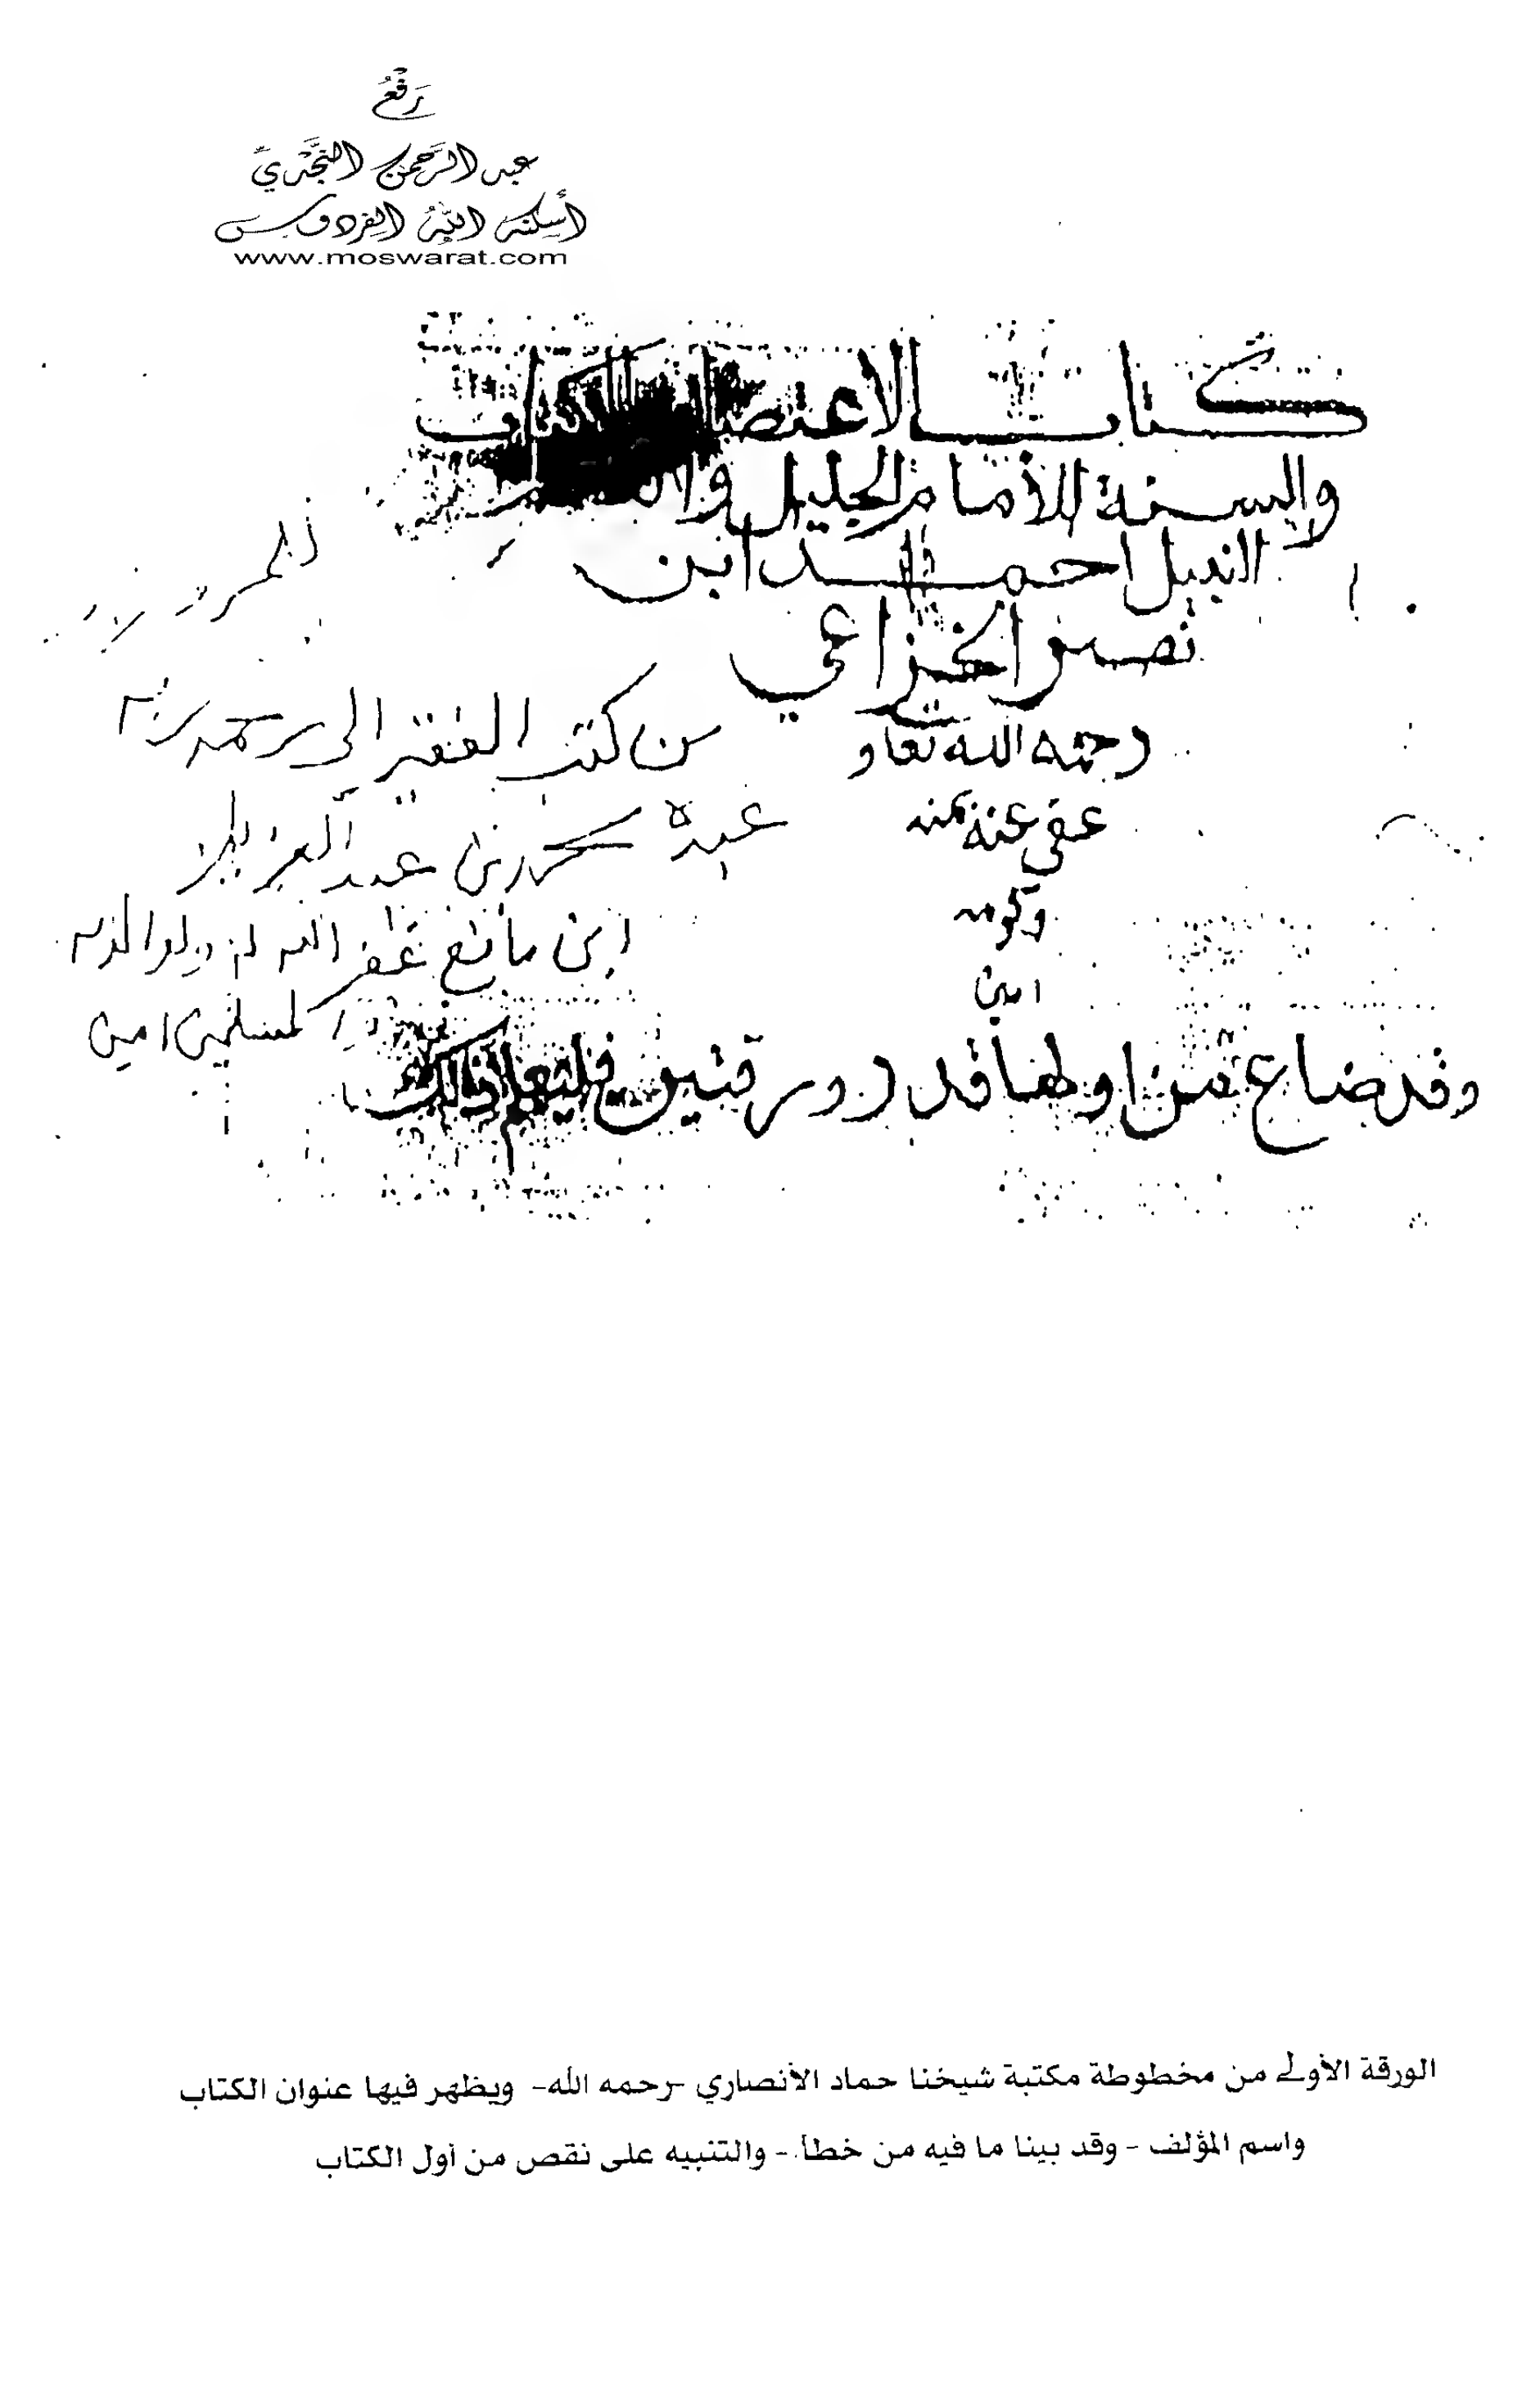 رَفْعُ
عبد الرَّحمن النَّجْديِّ
أسكنه اللهُ الفردوس
www.moswarat.com
كتاب الاعتصام بالكتاب
والسنة للأمام الجليل و
النبيل احمد ابن
نصر الخزاعي
رحمه الله تعا و
عفى عنه بمنه
وكرمه
امين
من كتب الفقير الى رحمة ربه
عبده محمد بن عبد العزيز
ابن مانع غفر الله له ولوالديه
المسلمين امين
وقد ضاع من اولها قدر ورقتين فليعلم ذالك
الورقة الأولى من مخطوطة مكتبة شيخنا حماد الأنصاري -رحمه الله- ويظهر فيها عنوان الكتاب
واسم المؤلف - وقد بينا ما فيه من خطأ - والتنبيه على نقص من أول الكتاب